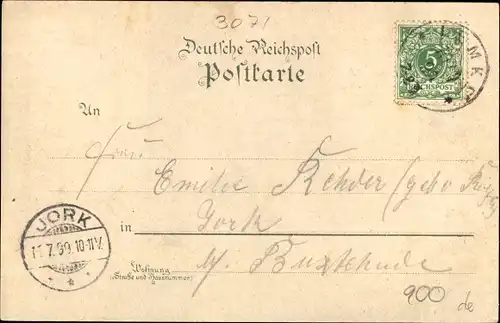 3071
Deutsche Reichspost
Postkarte
5
REICHSPOST
An
Frau
Emilie Rehder (geb.
in Jork
b/ Buxtehude
Wohnung
(Straße und Hausnummer)
JORK
7.99.10-11V.
900
de